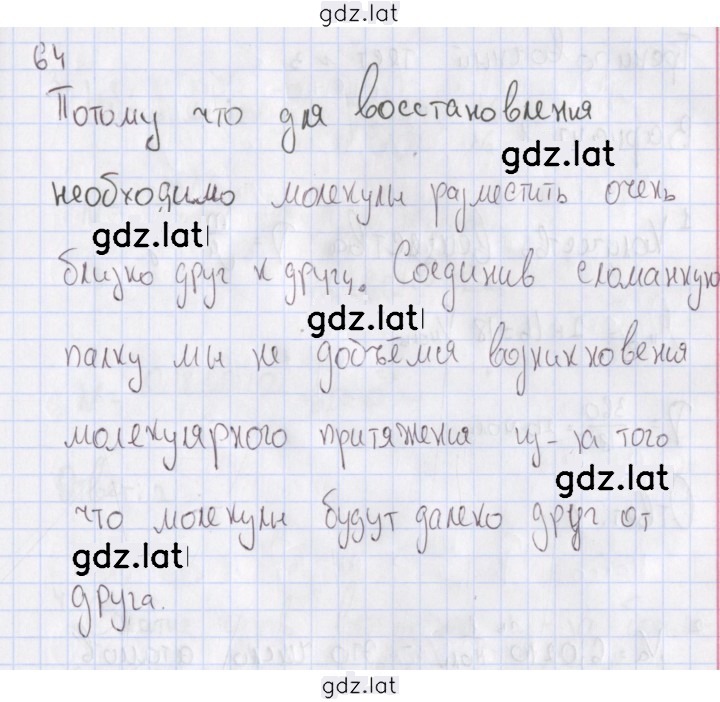 gdz.lat
64
Потому что для восстановления
gdz.lat
необходимо молекулы разместить очень
gdz.lat
близко друг к другу. Соединив сломанную
gdz.lat
палку мы не добъёмся возникновения
молекулярного притяжения из-за того
gdz.lat
что молекулы будут далеко друг от
gdz.lat
друга.
gdz.lat